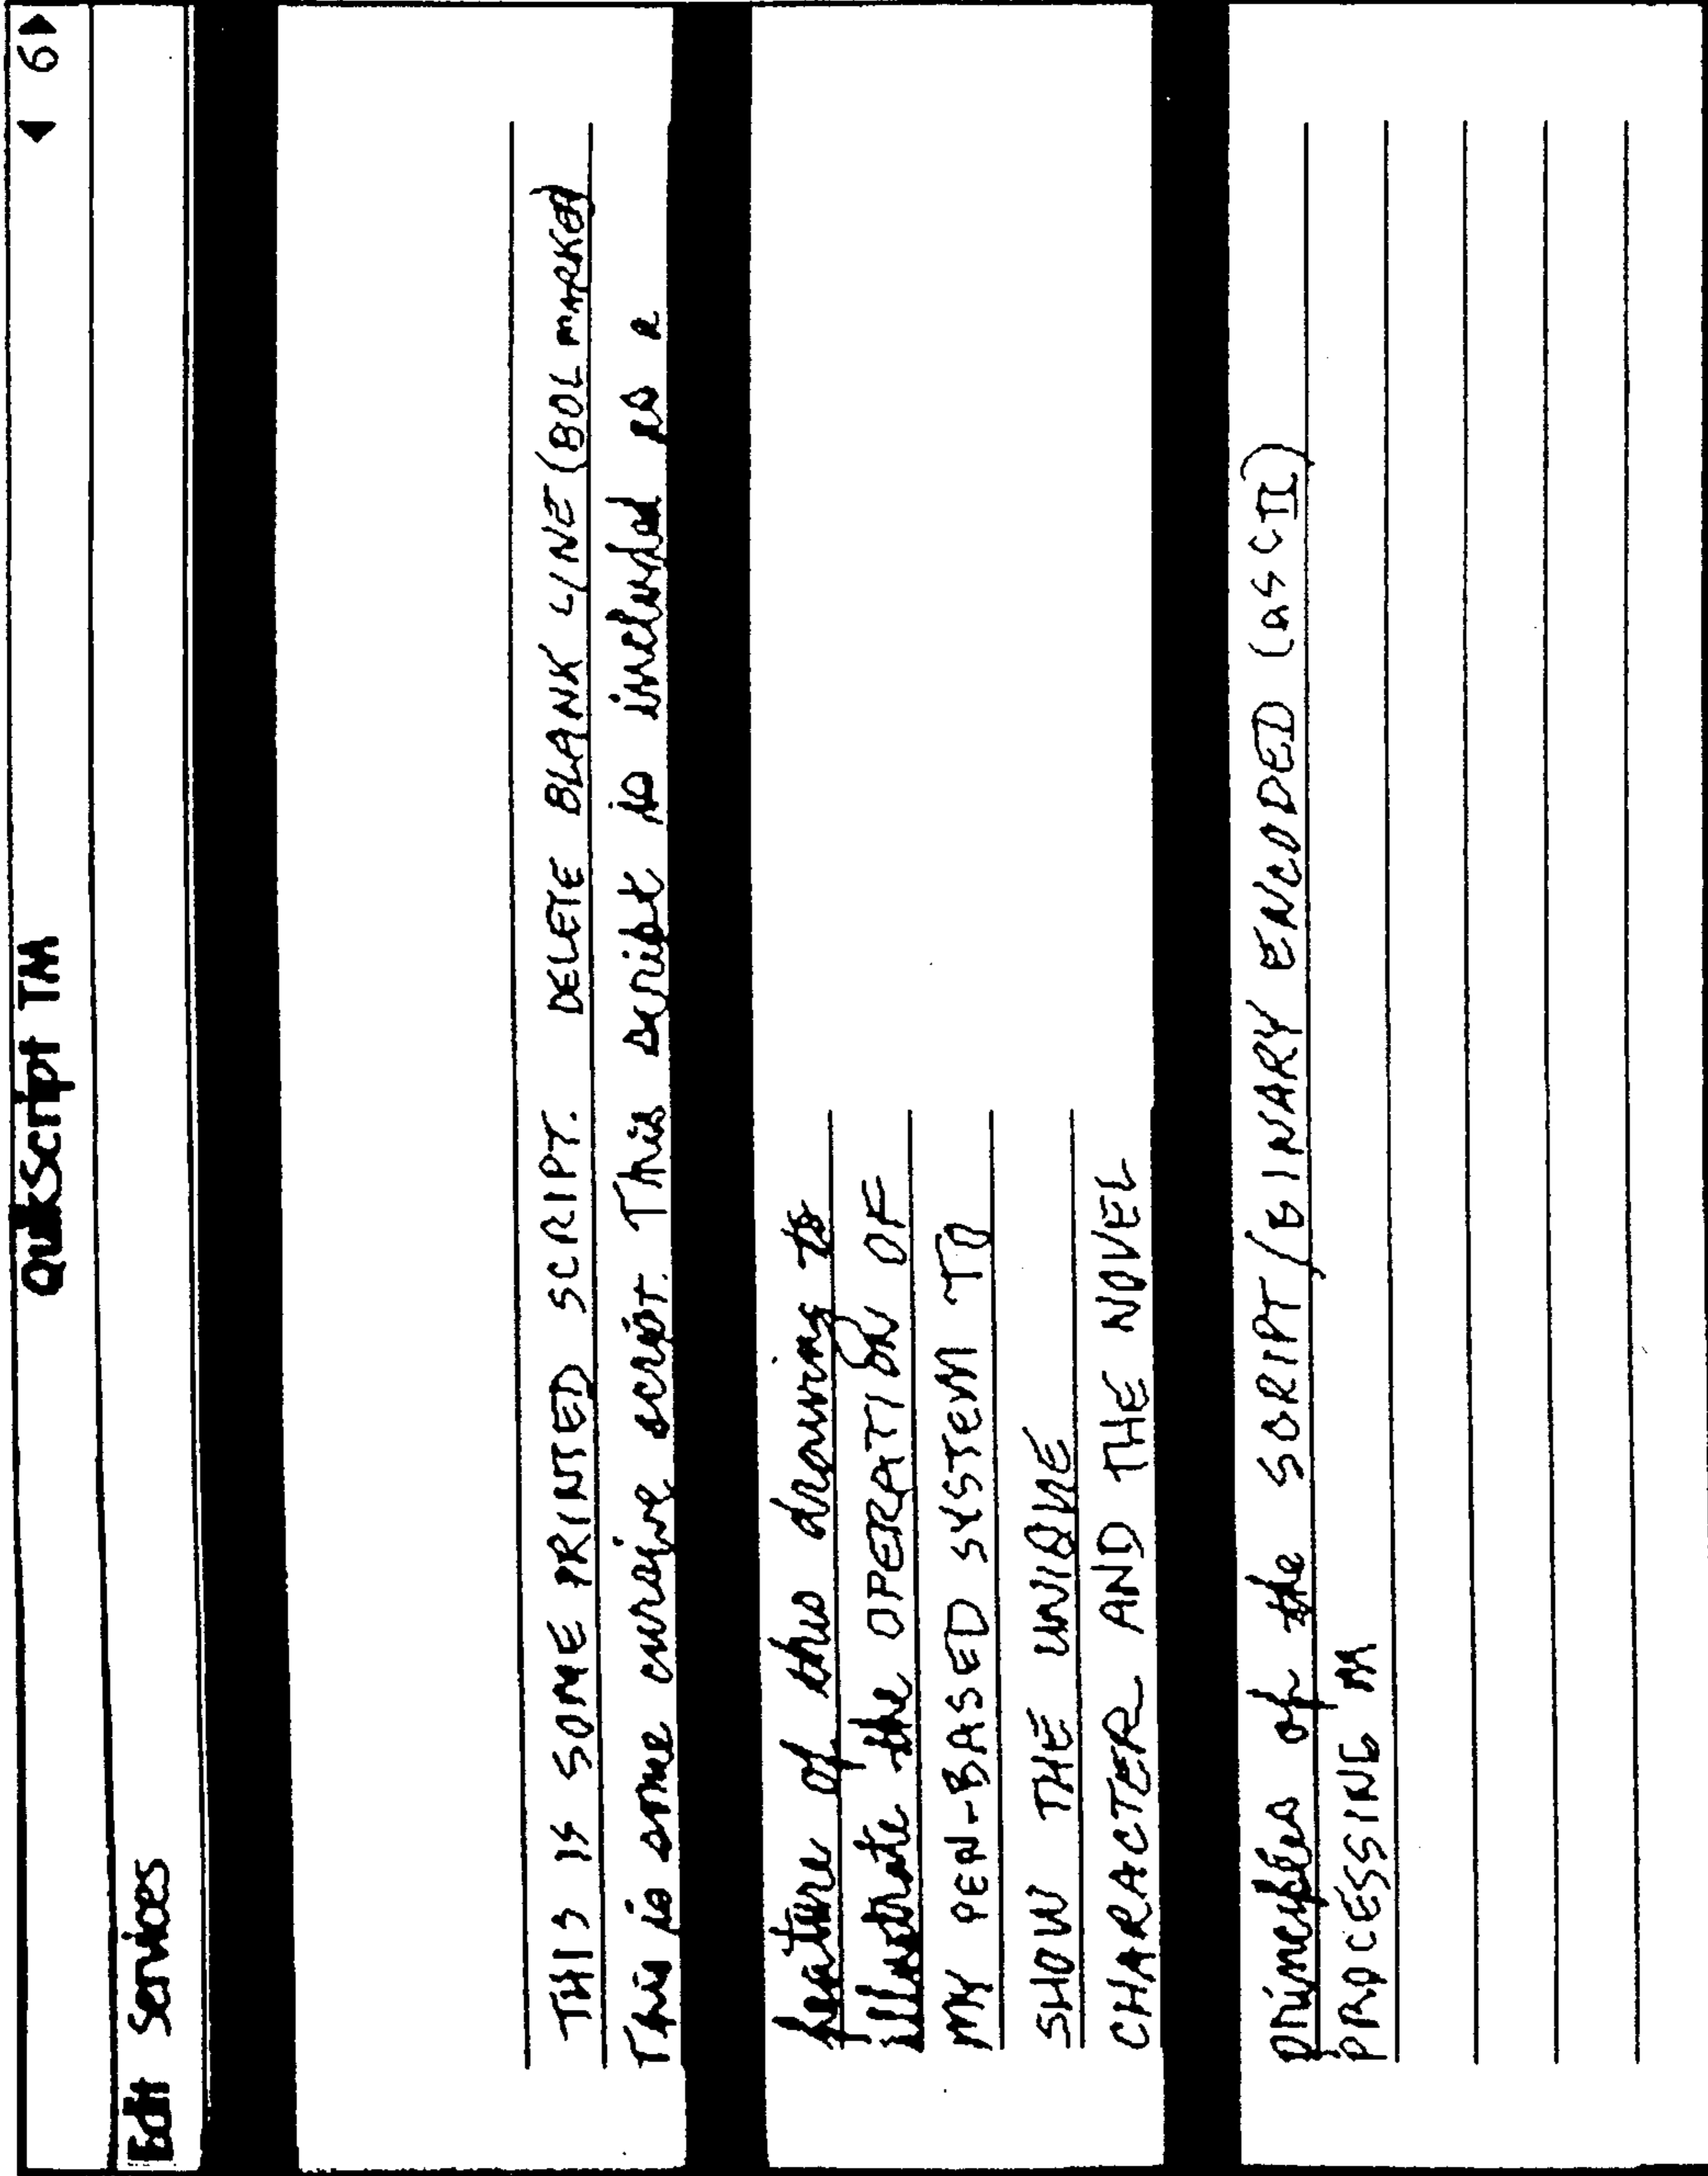 QuikScript TM
◀ 6 ▶
Edit Services
THIS IS SOME PRINTED SCRIPT. DELETE BLANK LINE (BOL MARKED)
This is some cursive script. This script is included as a
feature of this drawing to
illustrate the OPERATION OF
MY PEN-BASED SYSTEM TO
SHOW THE UNIQUE
CHARACTER AND THE NOVEL
principles of the SCRIPT/BINARY ENCODED (ASCII)
PROCESSING M